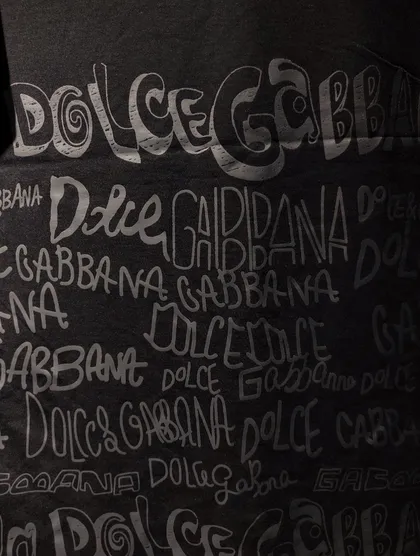 DOLCEGaBBA
BBANA Dolce GABBANA DO
CE GABBANA GABBANA DOL
ANA DOLCEDOLCE GA
GABBANA DOLCE Gabbana DOLCE
DOLCE&GABANA DOLCE GABBA
DOLCeGaBBna
DOLCEGABBA